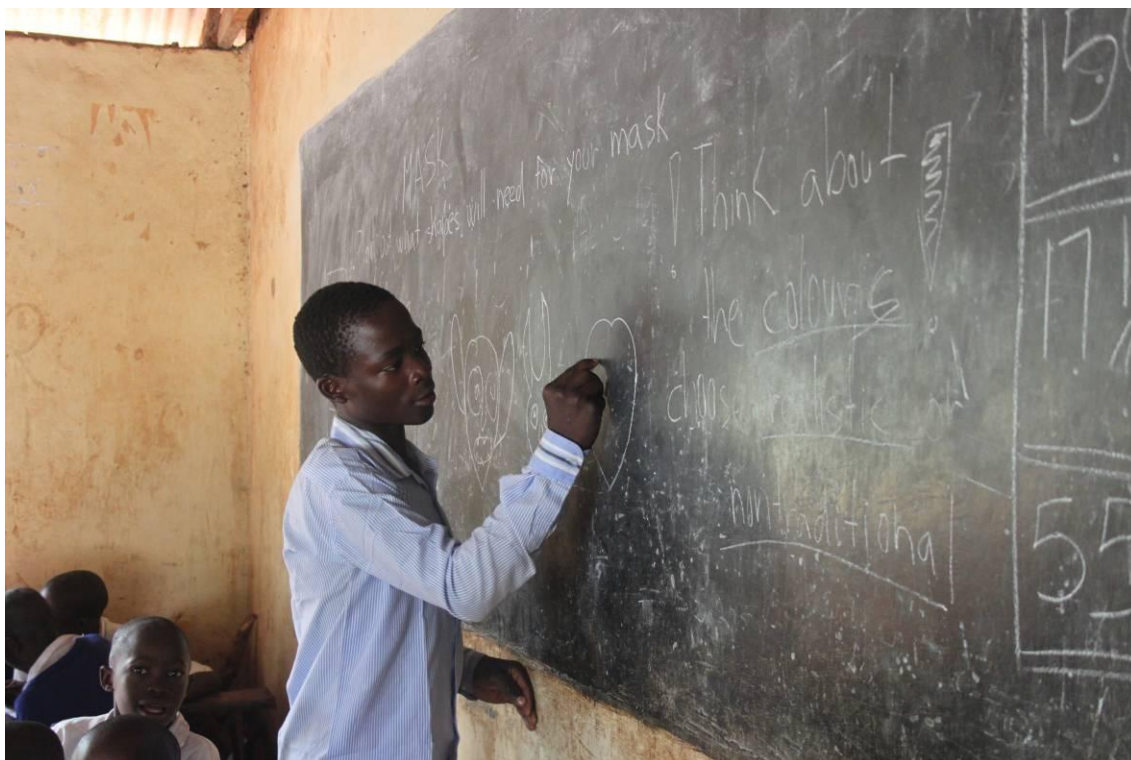 MASK
what shapes will need for your mask
Think about
the colours
choose realistic or
nontraditional
15
17
55